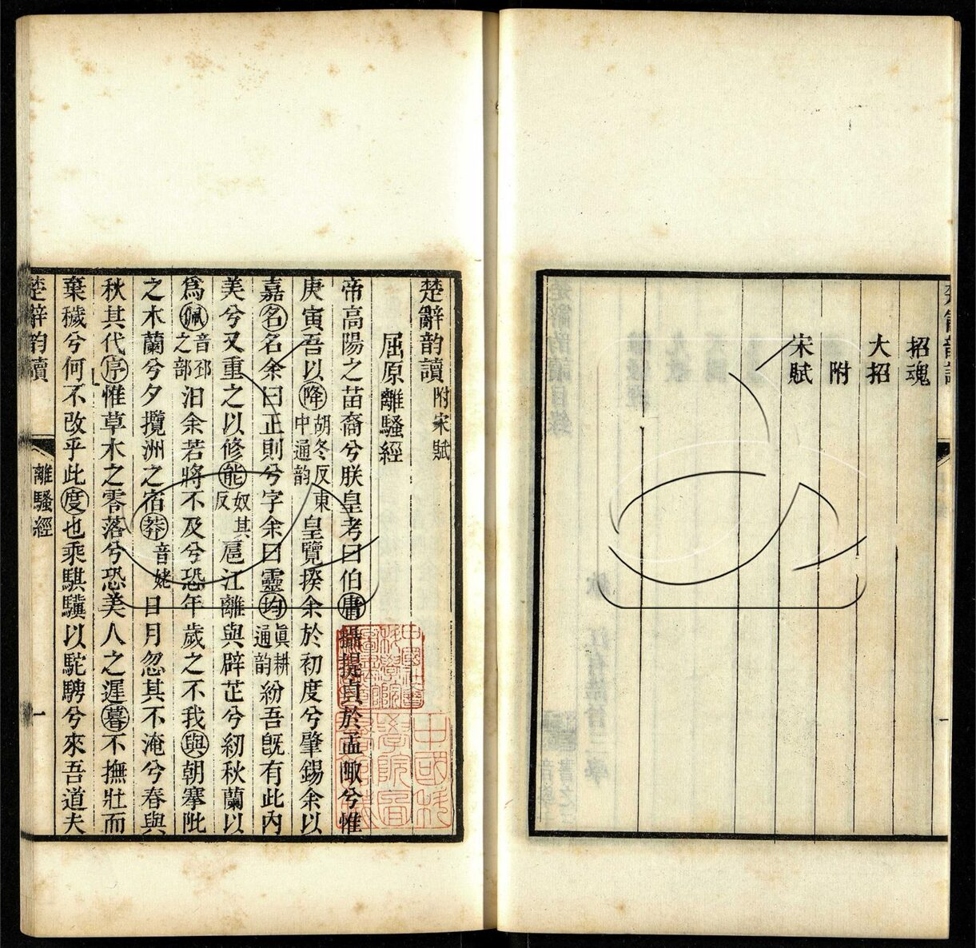 招魂
大招
附
宋賦
楚辭韵讀 附宋賦
屈原離騷經
帝高陽之苗裔兮朕皇考曰伯庸攝提貞於孟陬兮惟
庚寅吾以降胡冬反東中通韵皇覽揆余於初度兮肇錫余以
嘉名名余曰正則兮字余曰靈均真耕通韵紛吾旣有此內
美兮又重之以修能奴其反扈江離與辟芷兮紉秋蘭以
爲佩音邳之部汨余若將不及兮恐年歲之不我與朝搴阰
之木蘭兮夕攬洲之宿莽音姥日月忽其不淹兮春與
秋其代序惟草木之零落兮恐美人之遲暮不撫壯而
棄穢兮何不改乎此度也乘騏驥以駝騁兮來吾道夫
楚辭韵讀
離騷經
一